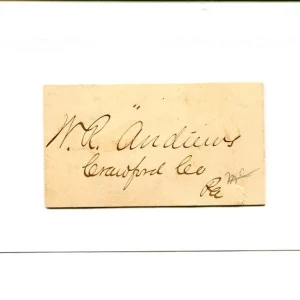 W. R. Andrews
Crawford Co
Pa